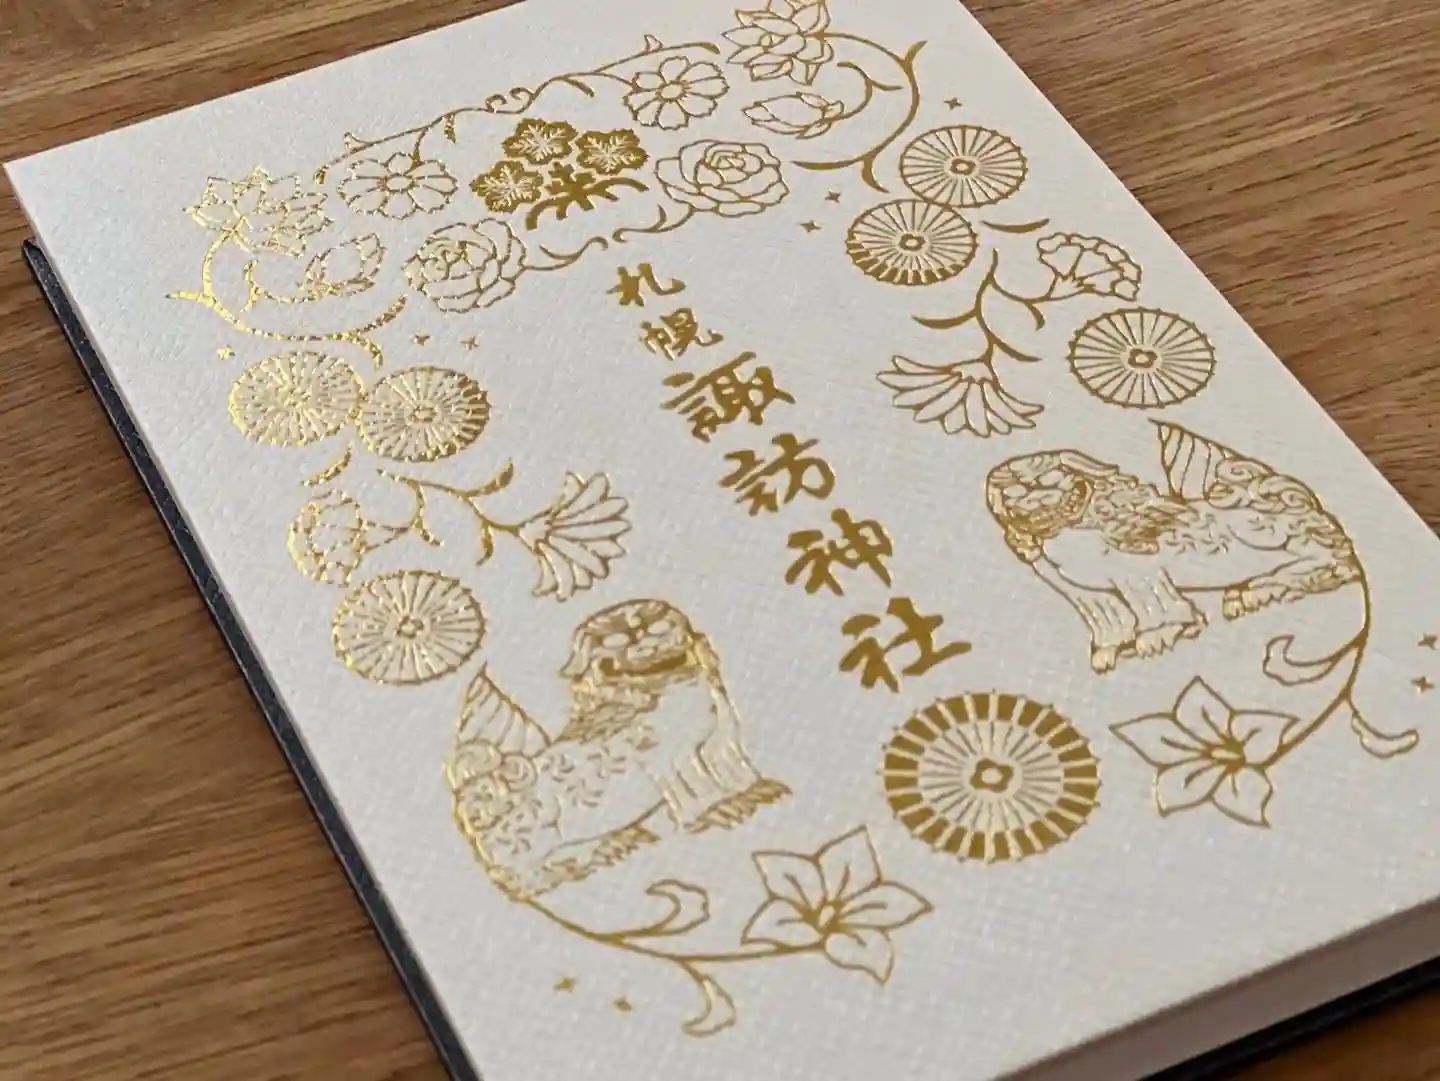 札幌諏訪神社